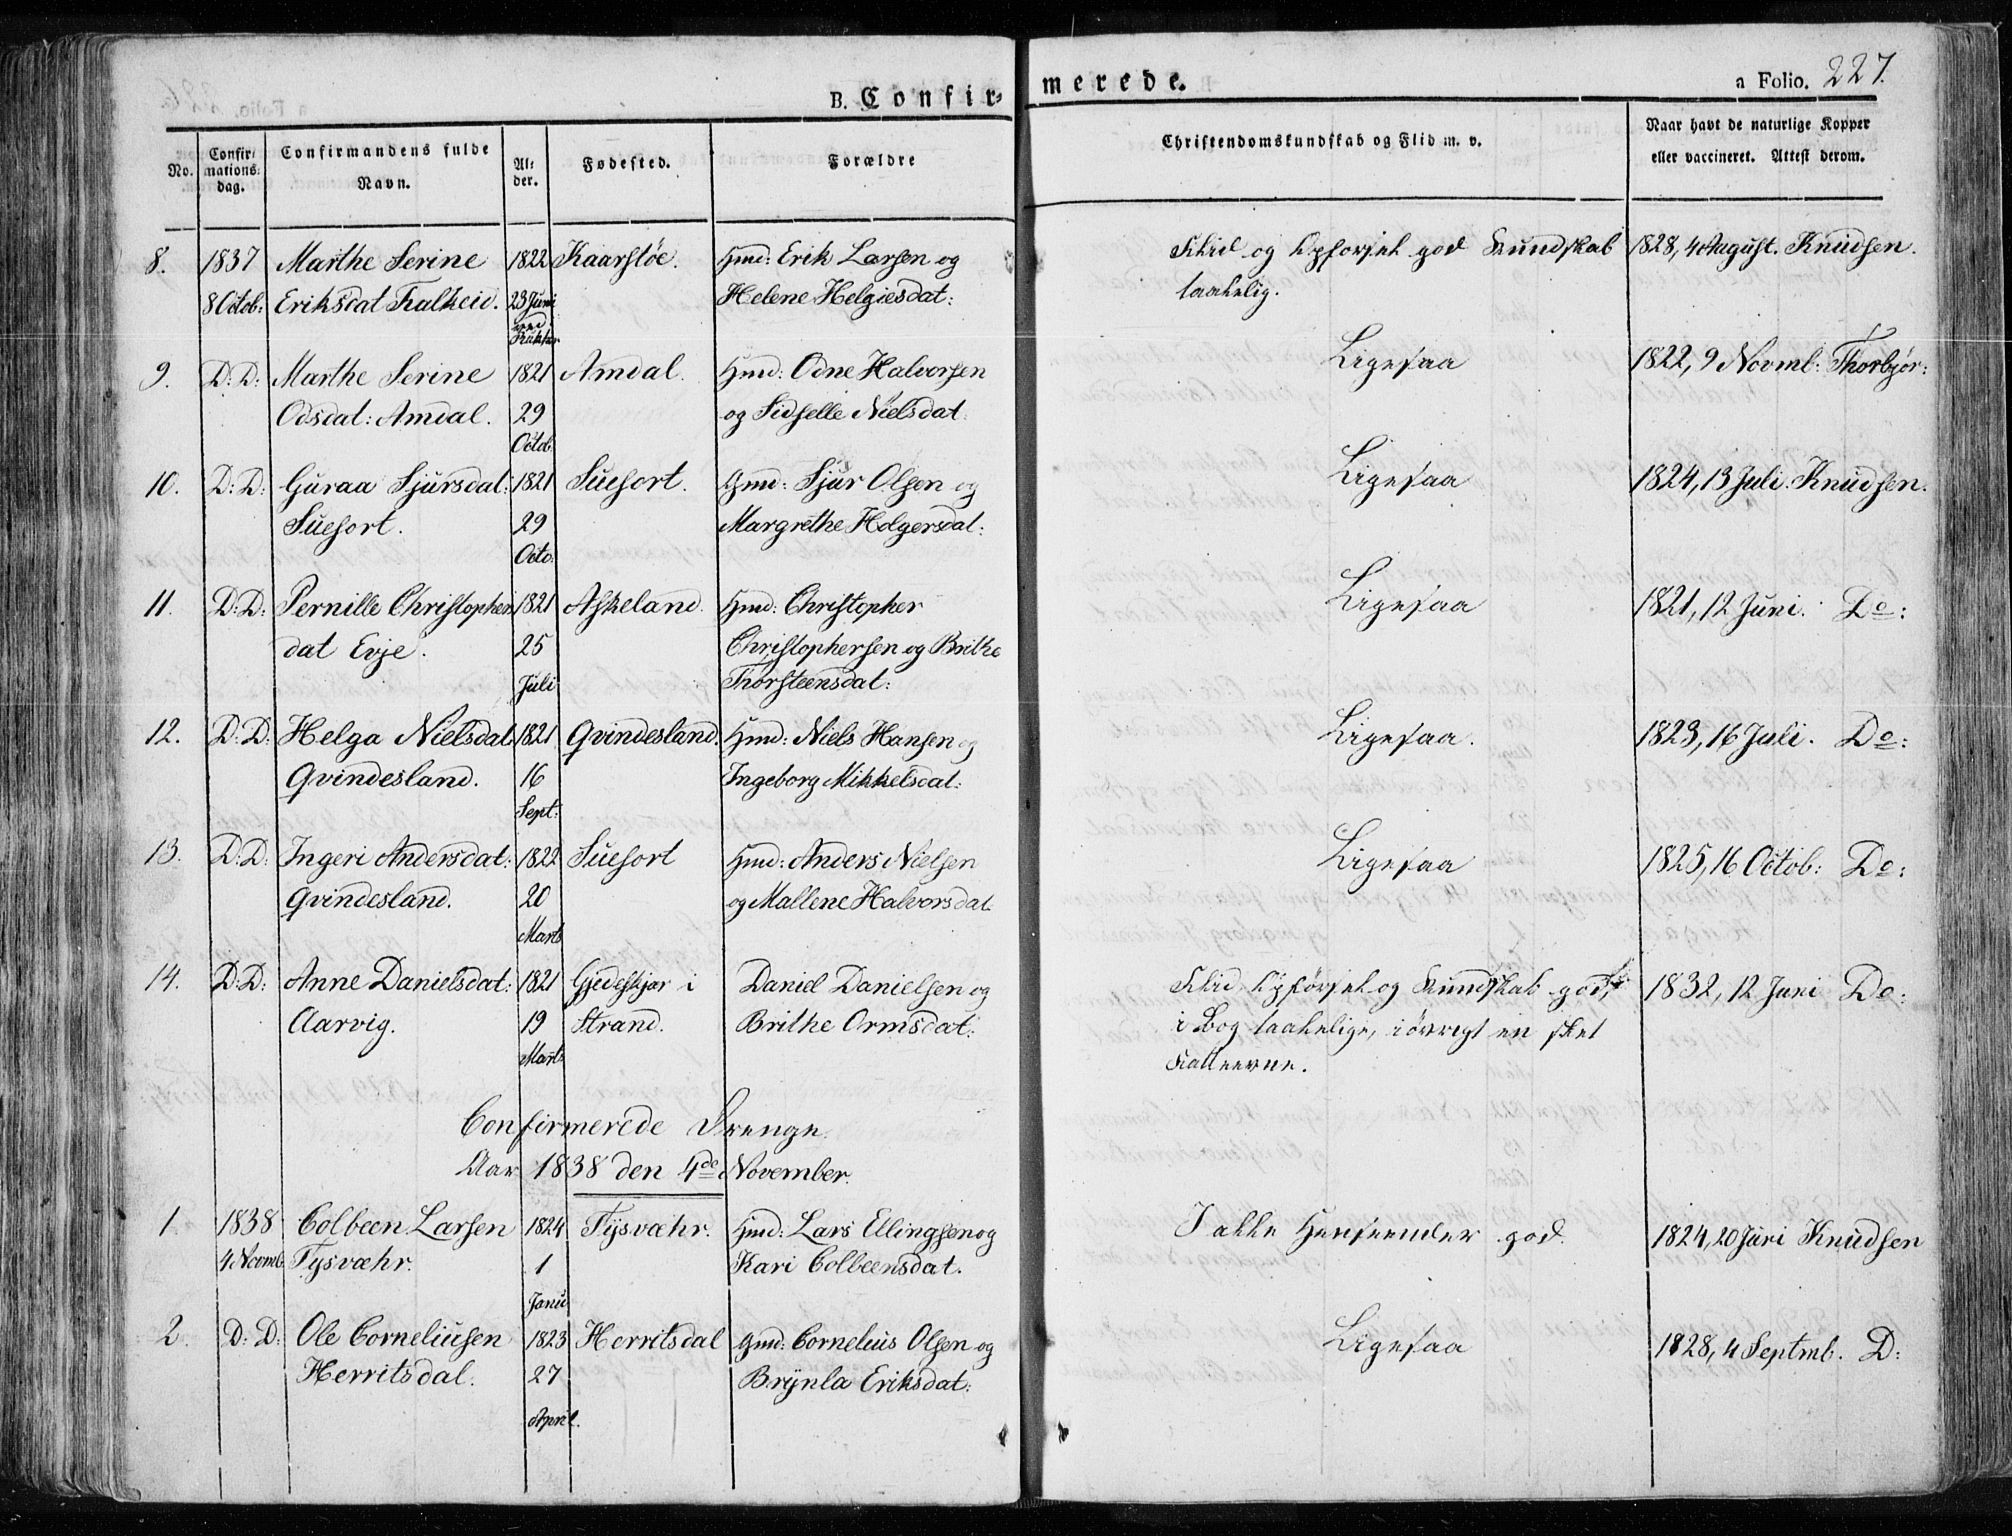 B. Confir-
merede.
a Folio. 227.
No.
Confir-
mations-
dag.
Confirmandens fulde
Navn.
Al-
der.
Fødested.
Forældre
Christendomskundskab og Flid m. v.
Naar havt de naturlige Kopper
eller vaccineret. Attest derom.
8. 1837 Marthe Serine 1822 Kaarstøe. Hmd: Erik Larsen og Flid og Opførsel god Kundskab 1828, 4 August. Knudsen.
8 Octob: Eriksdat Falkeid. 23 Juni Helene Helgiesdat: taalelig.
9. D: D: Marthe Serine 1821 Amdal. Hmd: Odne Halvorsen Ligesaa 1822, 9 Novmb: Thorbjør:
Odsdat: Amdal. 29 og Sidselle Nielsdat.
Octob
10. D: D: Guraa Sjursdat: 1821 Suefort. Gmd: Sjur Olsen og Ligesaa 1824, 13 Juli. Knudsen.
Suefort. 29 Margrethe Holgersdat:
Octo:
11. D: D: Pernille Christophers 1821 Askeland. Hmd: Christopher Ligesaa 1821, 12 Juni. Do:
dat Evje. 25 Christophersen og Brithe
Juli Thorsteensdat:
12. D: D: Helga Nielsdat 1821 Qvindesland. Hmd: Niels Hansen og Ligesaa. 1823, 16 Juli. Do:
Qvindesland. 16 Ingeborg Mikkelsdat:
Sept:
13. D: D: Ingeri Andersdat: 1822 Suefort Hmd: Anders Nielsen Ligesaa 1825, 16 Octob: Do:
Qvindesland. 20 og Mallene Halvorsdat.
Marts
14. D: D: Anne Danielsdat: 1821 Gjedeskjær i Daniel Danielsen og Flid Opførsel og Kundskab god, 1832, 12 Juni Do:
Aarvig. 19 Strand. Brithe Ormsdat: i Bog taalelige, i øvrigt en slet
Marts Fatteevne.
Confirmerede Drenge
Aar 1838 den 4de November.
1. 1838 Colbeen Larsen 1824 Tysvæhr. Hmd: Lars Ellingsen og I alle Henseender god. 1824, 20 Juni Knudsen
4 Novmb Tysvæhr. 1 Kari Colbeensdat.
Janu
2 D: D: Ole Corneliusen 1823 Herritsdal Gmd: Cornelius Olsen og Ligesaa 1828, 4 Septmb. D:
Herritsdal. 27 Brynla Eriksdat:
April.